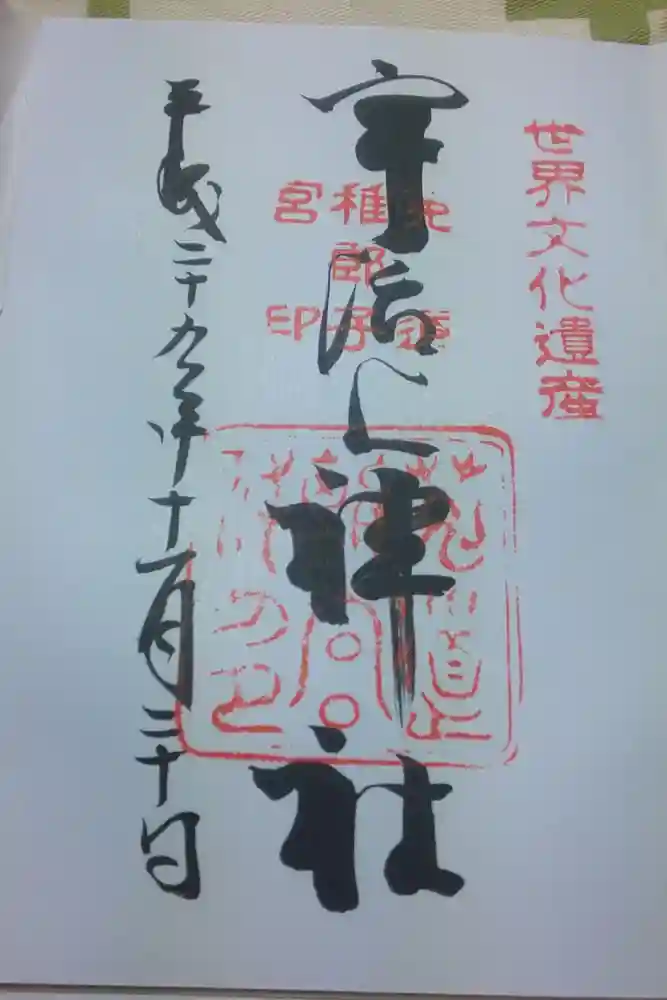 世界文化遺産
宇治上神社
菟道稚郎子宮印
平成二十九年十一月二十日